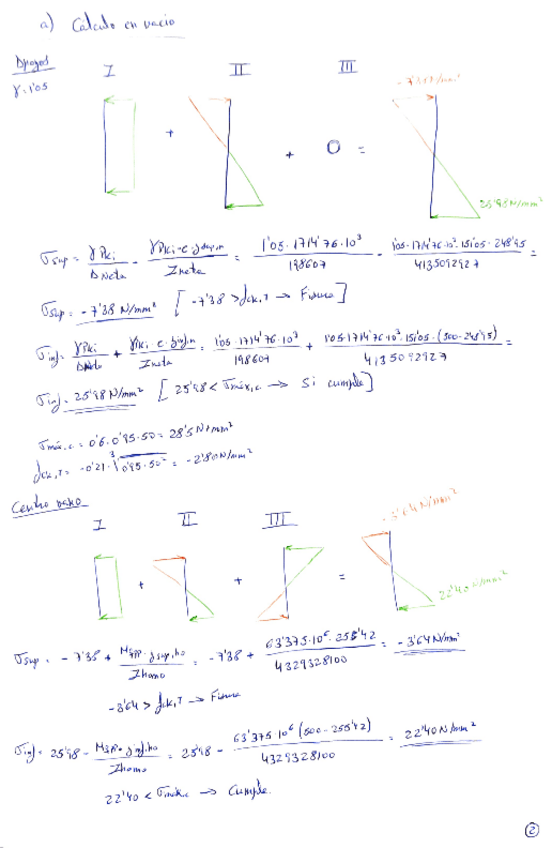 a) Calculo en vacio
Apoyos
γ=1'05
I II III
-7'38 N/mm²
+ + 0 =
25'98 N/mm²
σsup = γPki / Aneta - γPki·e·ysup,n / Ineta = 1'05·1714'76·10³ / 198607 - 1'05·1714'76·10³·151'05·248'95 / 4135092927 =
σsup = -7'38 N/mm² [-7'38 > fck,T → Fisura]
σinf = γPki / Aneta + γPki·e·yinf,n / Ineta = 1'05·1714'76·10³ / 198607 + 1'05·1714'76·10³·151'05·(500-248'95) / 4135092927 =
σinf = 25'98 N/mm² [25'98 < σmáx,c → Si cumple]
σmáx,c = 0'6·0'95·50 = 28'5 N/mm²
fck,T = -0'21·∛0'95·50² = -2'80 N/mm²
Centro vano
I II III
-3'64 N/mm²
+ + =
22'40 N/mm²
σsup = -7'38 + Mspp·ysup,ho / Ihomo = -7'38 + 63'375·10⁶·255'42 / 4329328100 = -3'64 N/mm²
-3'64 > fck,T → Fisura
σinf = 25'98 - Mspp·yinf,ho / Ihomo = 25'98 - 63'375·10⁶(500-255'42) / 4329328100 = 22'40 N/mm²
22'40 < σmáx,c → Cumple.
2